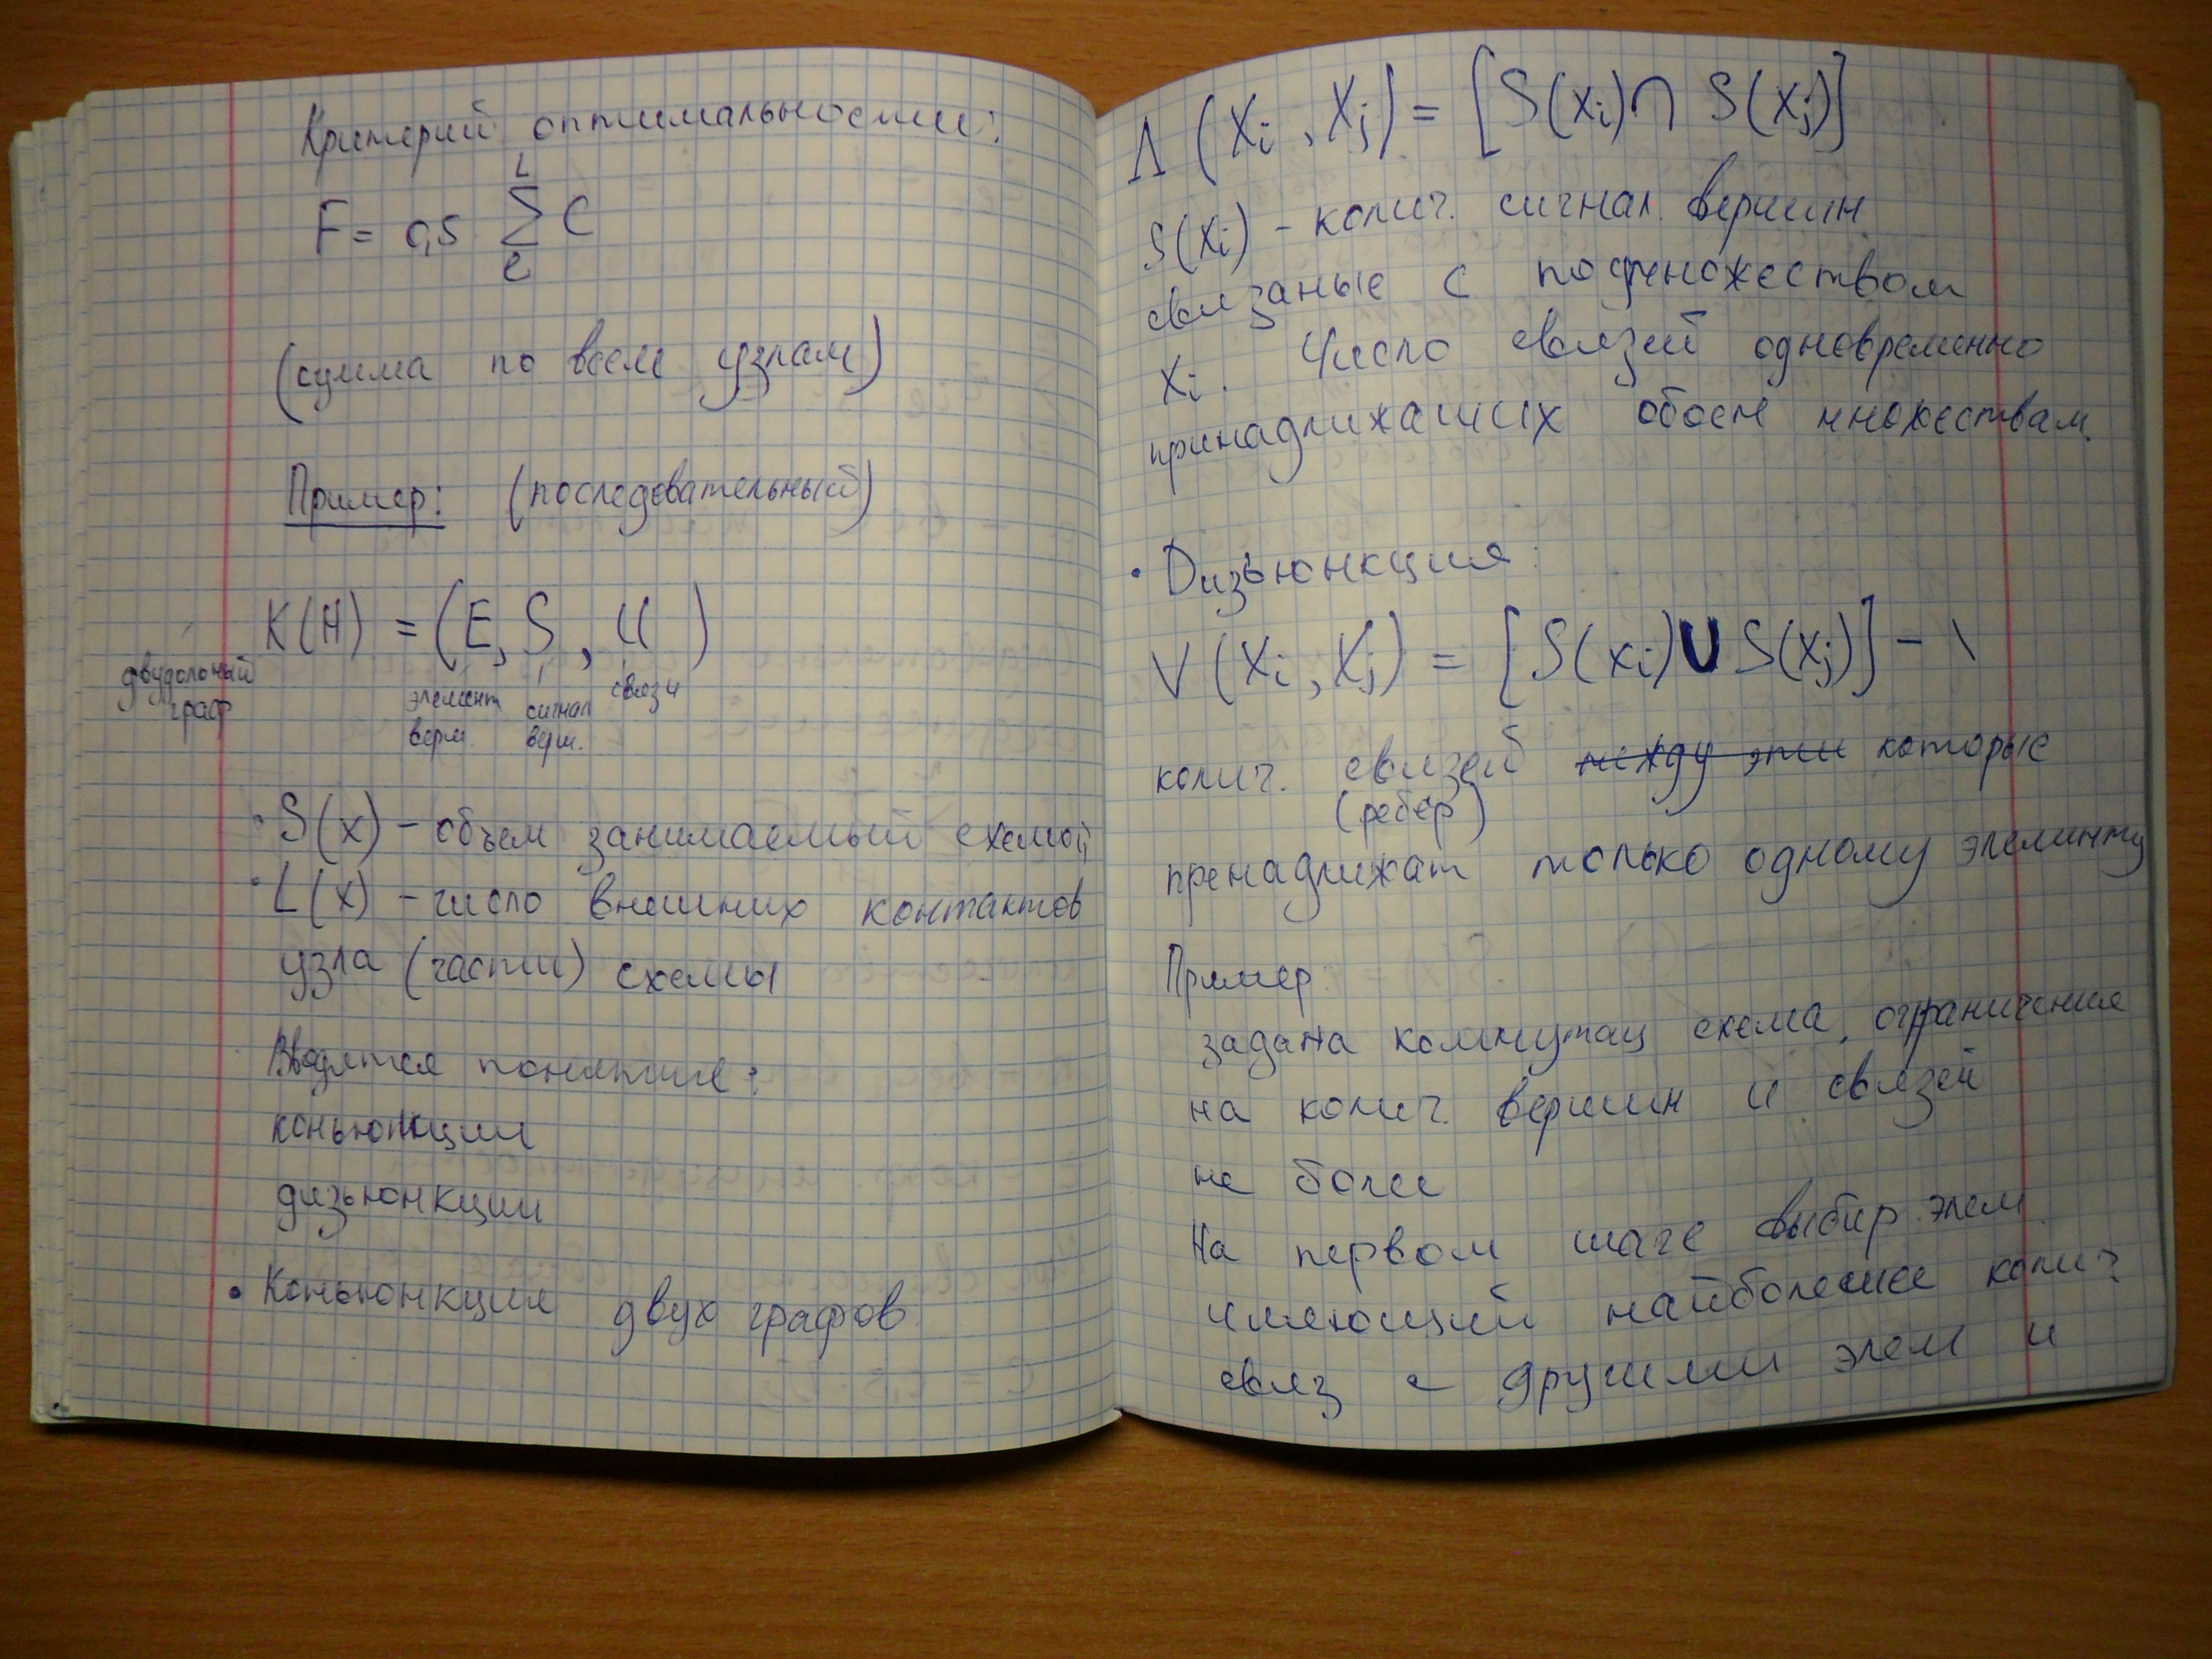 Критерий оптимальности:
L
F = 0,5 ∑ C
e
(сумма по всем узлам)
Пример: (последовательный)
K(H) = (E, S, U)
двудольный элемент сигнал связи
граф верш. верш.
• S(x) – объем занимаемый схемой
• L(x) – число внешних контактов
узла (части) схемы
Вводятся понятие:
коньюнкции
дизьюнкции
• Коньюнкция двух графов
Λ (Xi, Xj) = [S(xi) ∩ S(xj)]
S(xi) – колич. сигнал. вершин
связаные с подмножеством
xi. Число связей одновременно
принадлижащих обоем множествам.
• Дизьюнкция:
V (Xi, Xj) = [S(xi) U S(xj)] – \
колич. связей между эти которые
(ребер)
пренадлижат только одному элеминту
Пример
задана коммутац схема, ограничение
на колич. вершин и связей
не более
На первом шаге выбир. элем
имеющий найболешее колич
связ с другими элем и